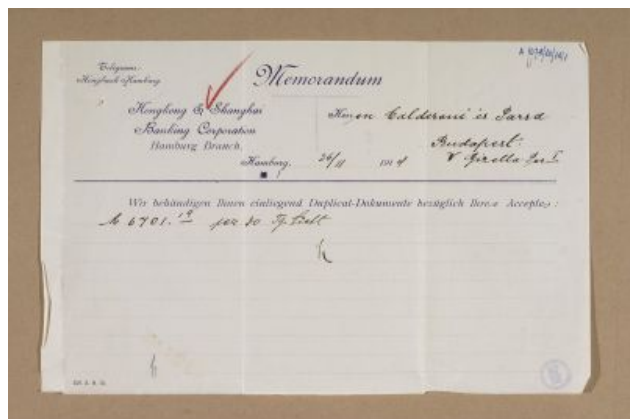 Telegramm:
Hongbank Hamburg.
Memorandum
Hongkong & Shanghai
Banking Corporation
Hamburg Branch.
Herren Calderoni és Társa
Budapest.
V Gizella
Hamburg, 26/II 1914
Wir behändigen Ihnen einliegend Duplicat-Dokumente bezüglich Ihres Acceptes:
M 6701.19 per 30